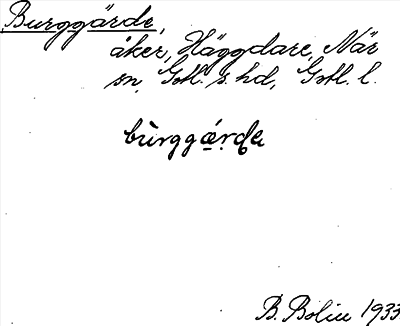 Burggärde,
åker, Häggdare, När
sn, Gotl. s. hd, Gotl. l.
bùrggǽrde
B. Bolin 1933